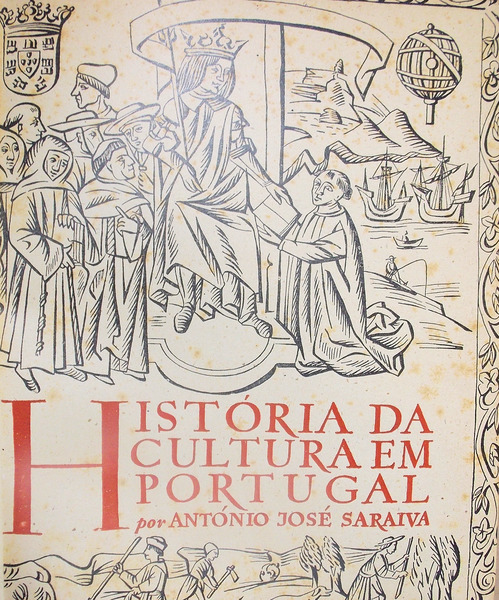 HISTÓRIA DA
CULTURA EM
PORTUGAL
por ANTÓNIO JOSÉ SARAIVA